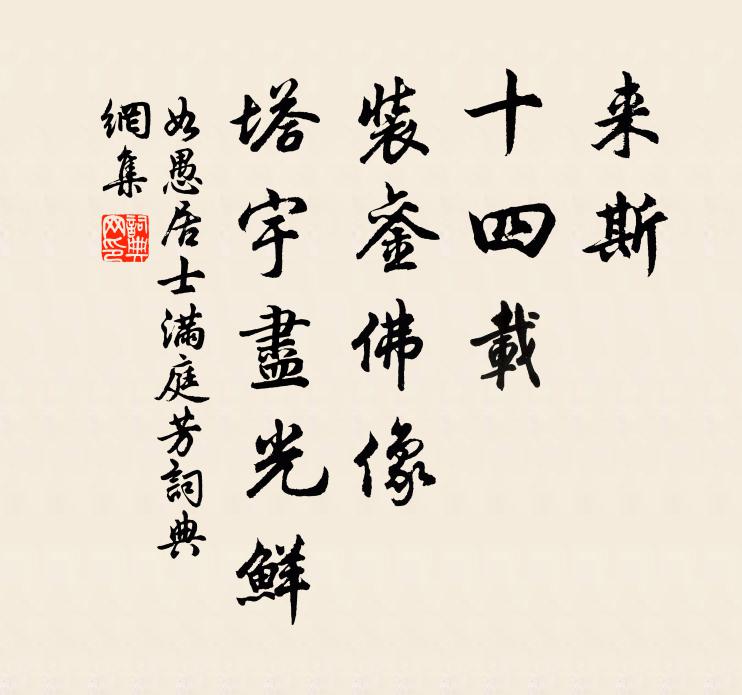 来斯
十四載
裝銮佛像
塔宇盡光鮮
如愚居士滿庭芳詞典
網集
詞典網印